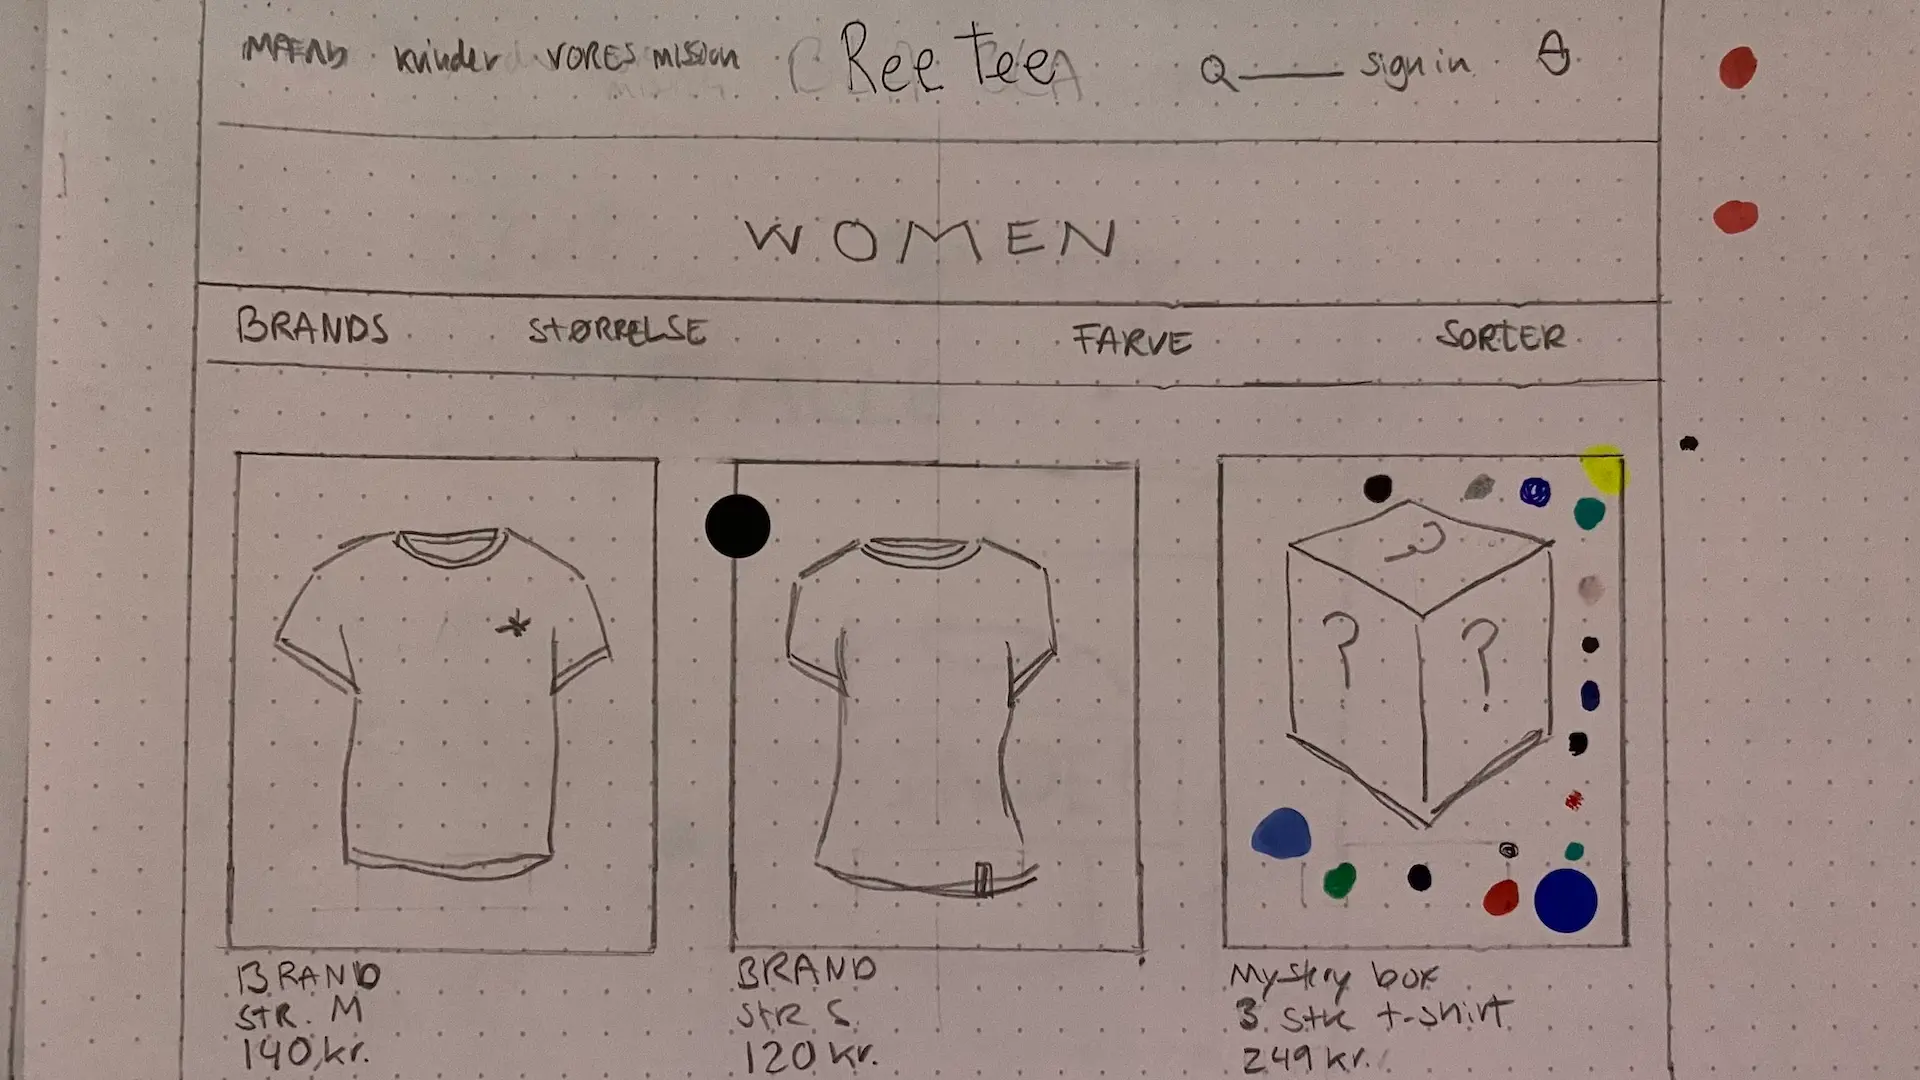 MÆND kvinder VORES mission Ree Tee Q sign in
WOMEN
BRANDS STØRRELSE FARVE SORTER
? ? ?
BRAND
STR. M
140 kr.
BRAND
STR S.
120 kr.
Mystery box
3 stk t-shirt
249 kr.